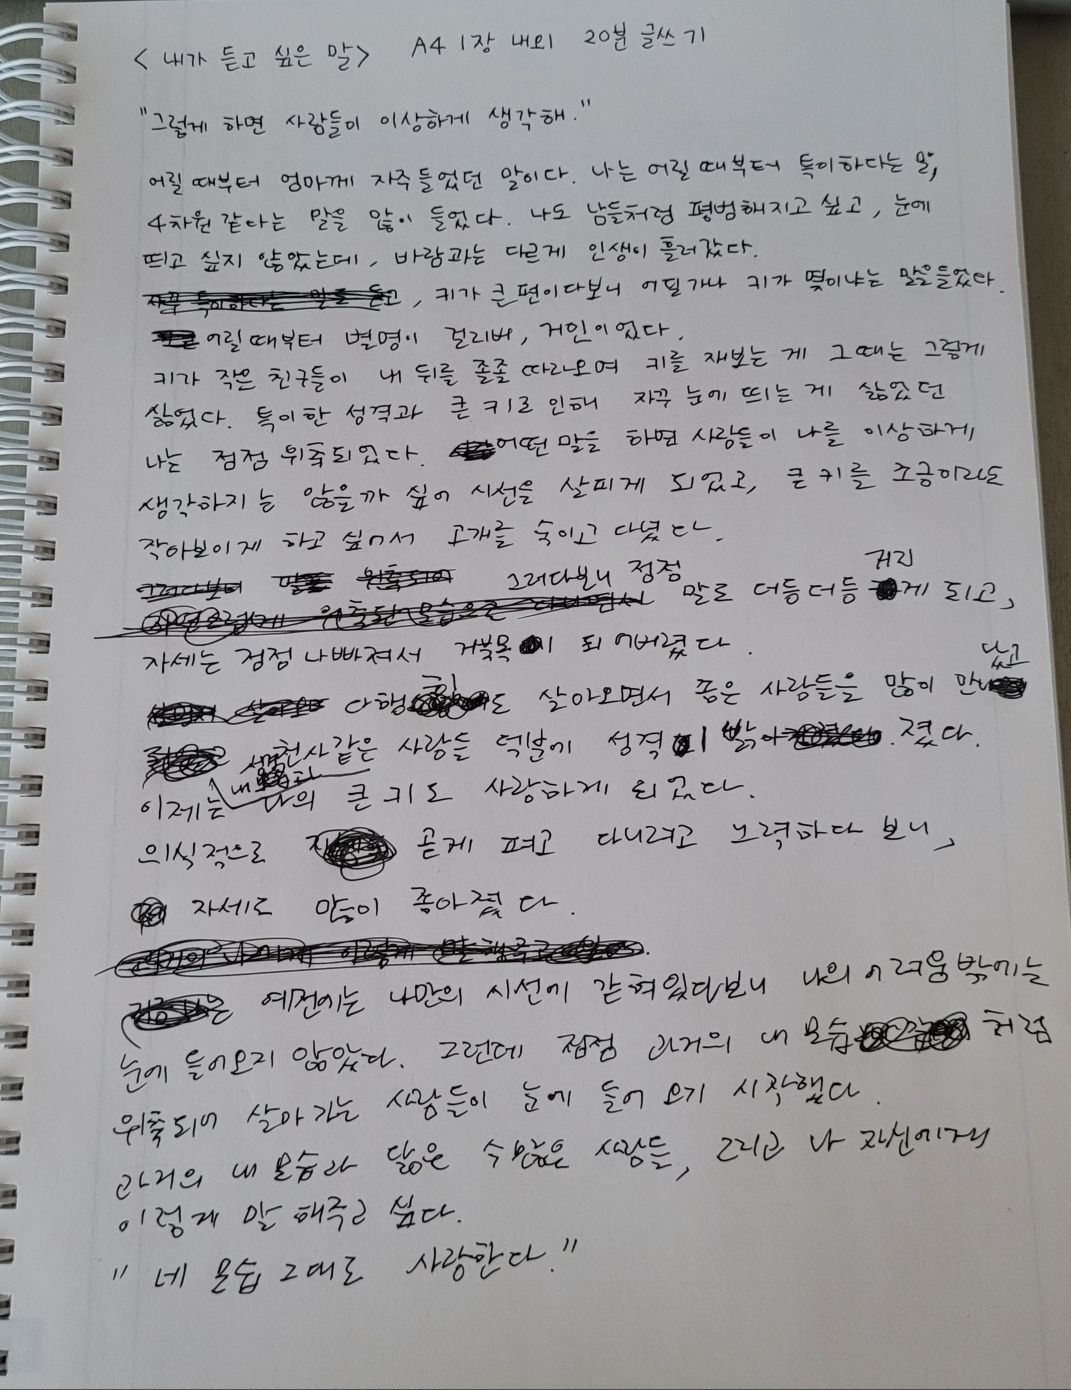 < 내가 듣고 싶은 말> A4 1장 내외 20분 글쓰기
"그렇게 하면 사람들이 이상하게 생각해."
어릴 때부터 엄마께 자주 들었던 말이다. 나는 어릴 때부터 특이하다는 말,
4차원 같다는 말을 많이 들었다. 나도 남들처럼 평범해지고 싶고, 눈에
띄고 싶지 않았는데, 바람과는 다르게 인생이 흘러갔다.
, 키가 큰 편이다보니 어딜가나 키가 몇이냐는 말을 들었다.
어릴 때부터 별명이 걸리버, 거인이었다.
키가 작은 친구들이 내 뒤를 졸졸 따라오며 키를 재보는 게 그때는 그렇게
싫었다. 특이한 성격과 큰 키로 인해 자꾸 눈에 띄는 게 싫었던
나는 점점 위축되었다. 어떤 말을 하면 사람들이 나를 이상하게
생각하지는 않을까 싶어 시선을 살피게 되었고, 큰 키를 조금이라도
작아보이게 하고 싶어서 고개를 숙이고 다녔다.
그러다보니 점점 말도 더듬더듬 거리게 되고,
자세는 점점 나빠져서 거북목이 되어버렸다.
다행히도 살아오면서 좋은 사람들을 많이 만났고
천사같은 사람들 덕분에 성격이 밝아졌다.
이제는 나의 큰 키도 사랑하게 되었다.
의식적으로 곧게 펴고 다니려고 노력하다 보니,
자세도 많이 좋아졌다.
예전에는 나만의 시선에 갇혀있다보니 나의 어려움 밖에는
눈에 들어오지 않았다. 그런데 점점 과거의 내 모습처럼
위축되어 살아가는 사람들이 눈에 들어 오기 시작했다.
과거의 내 모습과 닮은 수많은 사람들, 그리고 나 자신에게
이렇게 말해주고 싶다.
"네 모습 그대로 사랑한다."